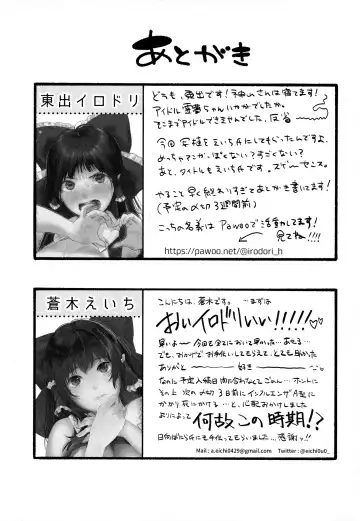 あとがき
東出イロドリ
どうも、東出です！神山さんは寝てます！
アイドル霊夢ちゃんいかがでしたか。
そこまでアイドルできませんでした、反省
今回写植をえいちにしてもらったんですよ、
めっちゃマンガっぽくない？すごくない？
あと、タイトルもえいちです。スゲーセンス。
やること早く終わりすぎてあとがき書けます！
(予定の〆切3週間前)
こっちの名義は Pawooで活動してます！
見てね!!!!
https://pawoo.net/@irodori_h
蒼木えいち
こんにちは、蒼木です。…まずは
おいイロドリいい!!!!!♡♡
早いよ〜今回も全てにおいて早かった…あせる…
でも、おかげでお手伝いしてもらえて、とても助かた
ありがと 好き
なのに予定入稿日内に合わなくてごめん…ホントに
その上次の〆切3日前にインフルエンザA型に
かかり死にかける…と、心配おかけしました
よりによって何故この時期!?
日向はたらにも手伝ってもらいました…感謝ッ!!
Mail : a.eichi0429@gmail.com Twitter : @eichi0u0_